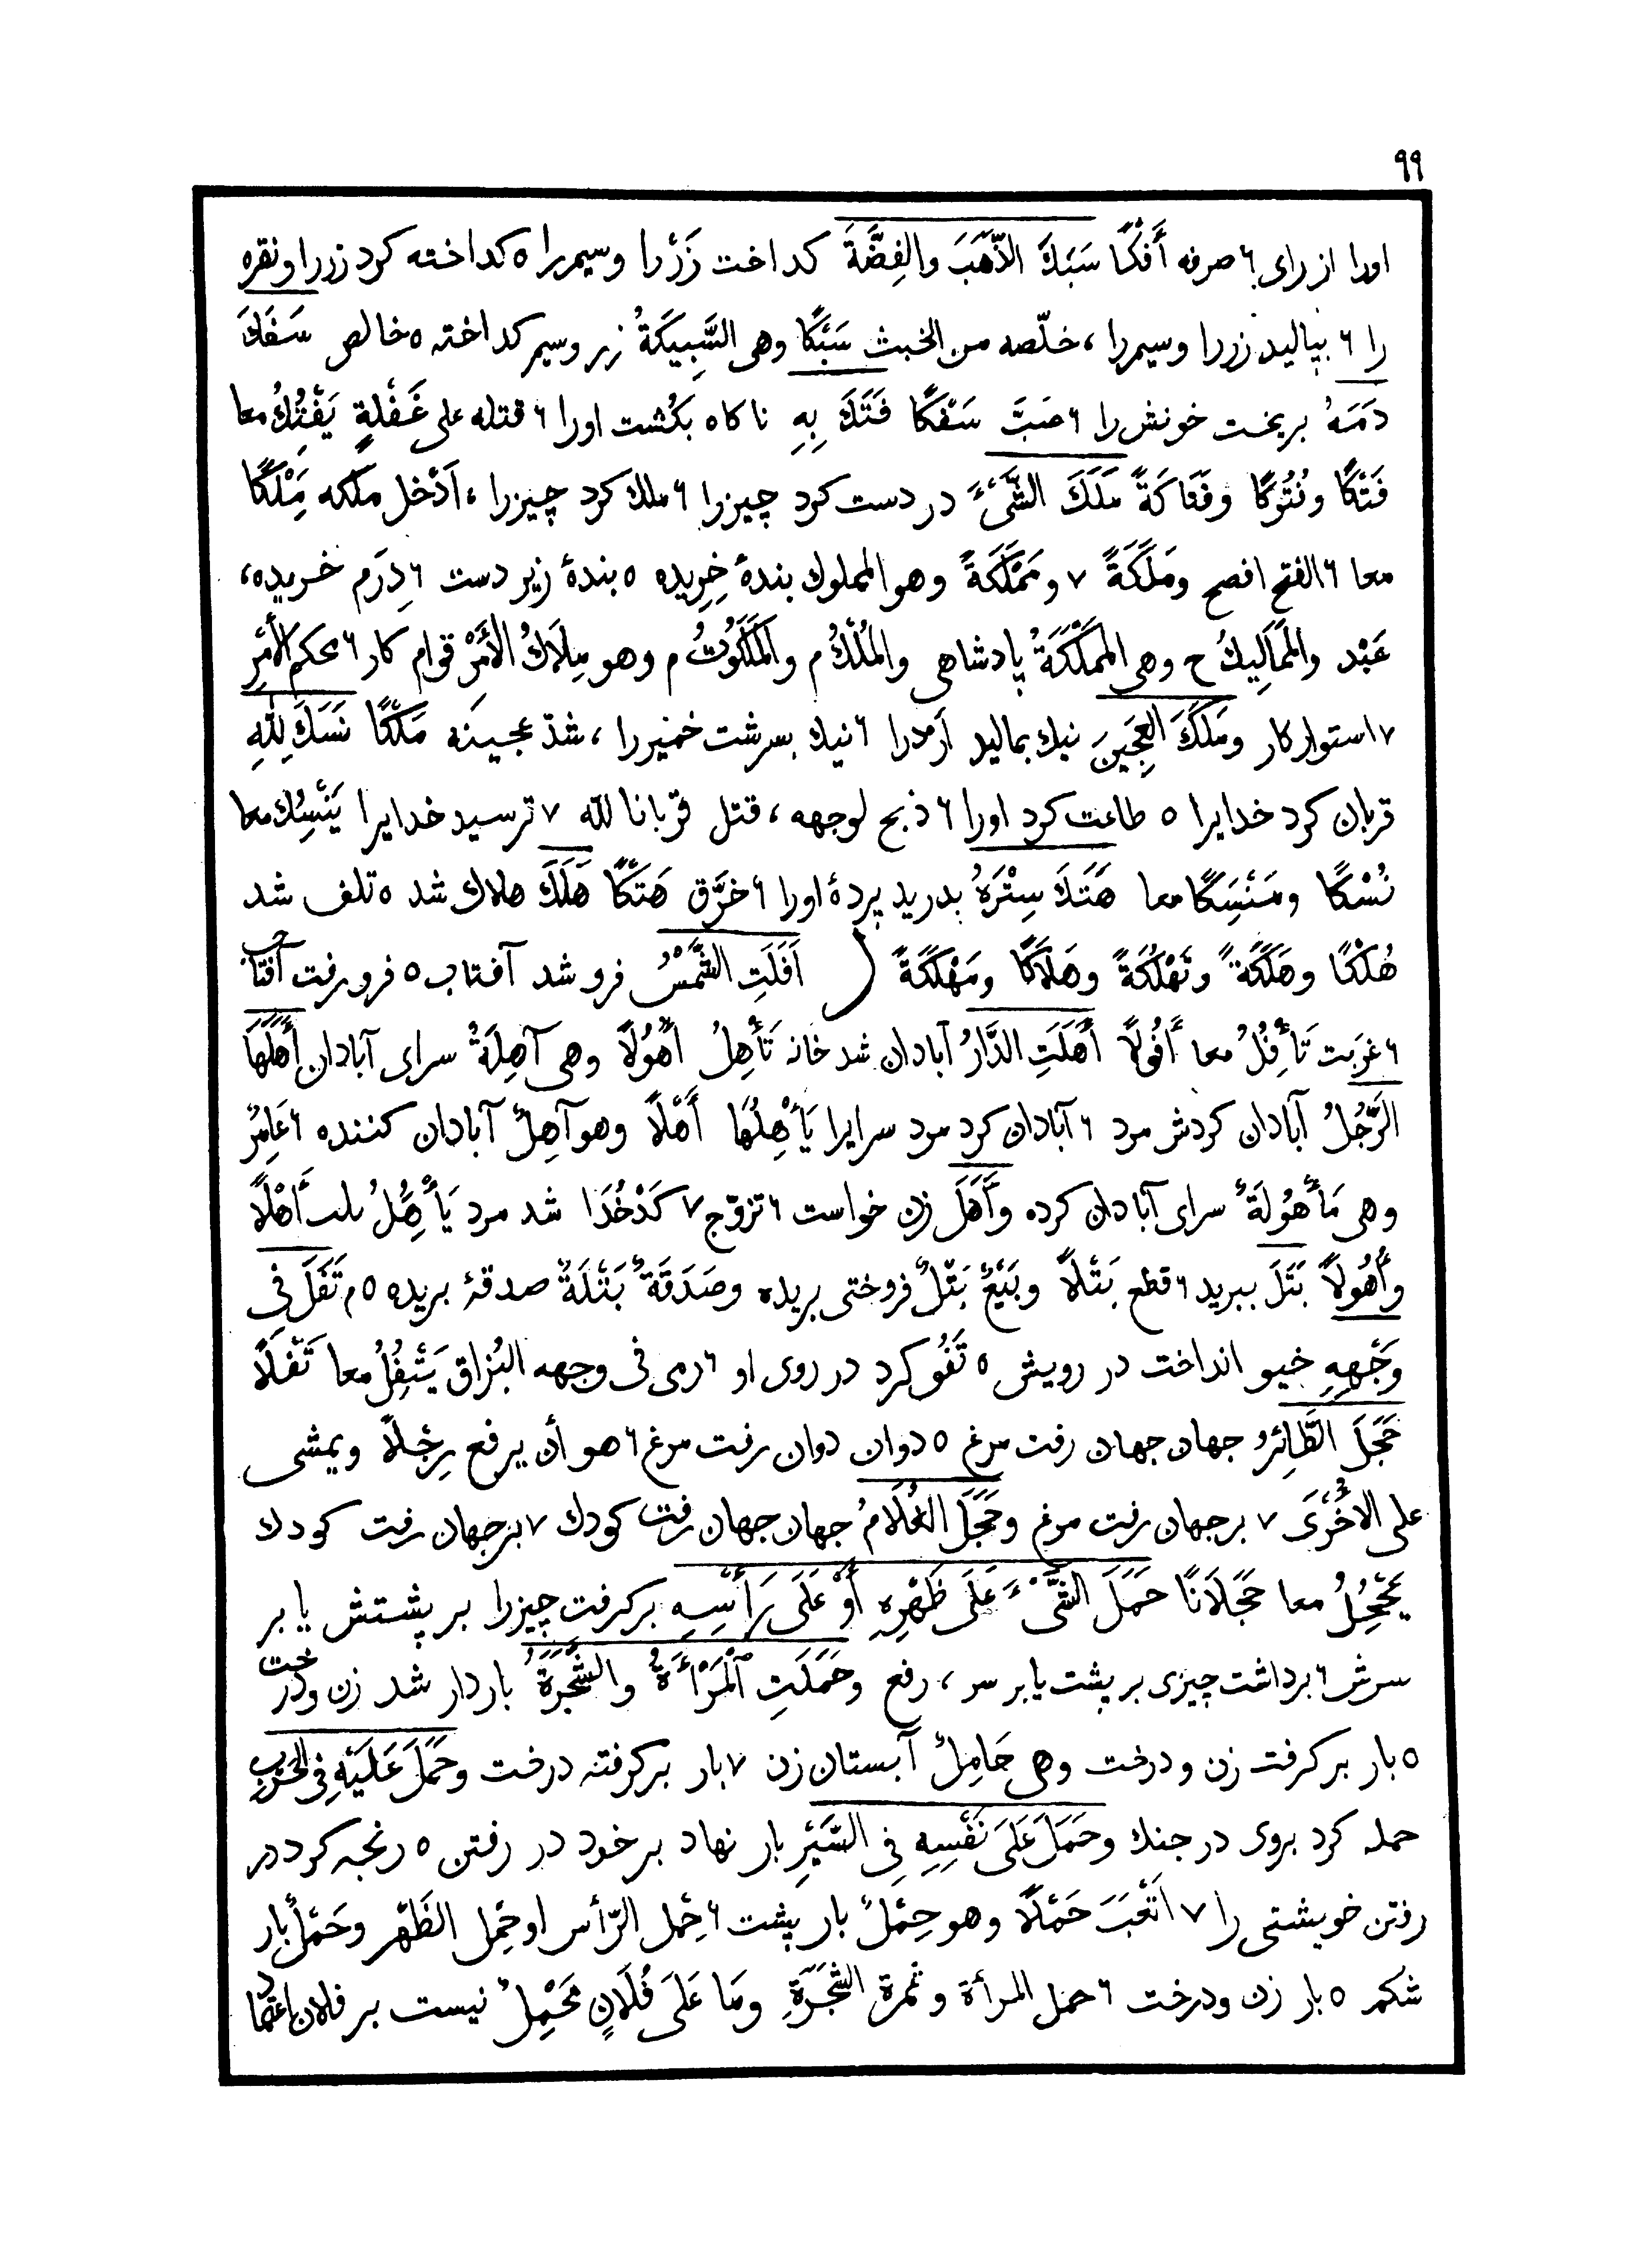 ٩٩
اورا از رای ٦ صرفه أَفْكًا سَبَكَ الذَّهَبَ والفِضَّةَ كداخت زَرْرا وسیمرا ٥ كداخته كرد زررا ونقره
را ٦ بپالید زررا وسیمرا ، خلّصه من الخبث سَبْكًا وهی السَّبِيكَةُ زر وسیم كداخته ٥ خالص سَفَكَ
دَمَهُ بریخت خونش را ٦ صَبَّ سَفْكًا فَتَكَ بِهِ ناكاه بكُشت اورا ٦ قتله على غَفْلةٍ يَفْتُِكُ معا
فَتْكًا وفُتُوكًا وفَتَاكَةً مَلَكَ الشَّیْءَ در دست كرد چیزرا ٦ ملك كرد چیزرا ، اَدْخل ملكه مَِلْكًا
معا ٦ الفتح افصح ومَلَكَةً ٧ ومَمْلَكَةً وهو المملوك بندهٔ خِریده ٥ بندهٔ زیر دست ٦ دِرَم خریده ،
عَبْد والمَمَالِيكُ ح وهی المَمْلَكَةُ پادشاهی والمُلْكُ م والمَلَكُوتُ م وهو مِلَاكُ الأَمْرِ قوام كار ٦ محكم الأمْرِ
٧ استوار كار ومَلَكَ العَجِينَ نیك بمالید آردرا ٦ نیك بسرشت خمیررا ، شدّ عجینَه مَلْكًا نَسَكَ لِلّٰهِ
قربان كرد خدایرا ٥ طاعت كرد اورا ٦ ذبح لوجهه ، قتل قربانا لله ٧ ترسید خدایرا يَنْسُِكُ معا
نُسْكًا ومَنْسَِكًا معا هَتَكَ سِتْرَهُ بدرید پردهٔ اورا ٦ خرَّق هَتْكًا هَلَكَ هلاك شد ٥ تلف شد
هُلْكًا وهَلَكَةً وتَهْلُكَةً وهَلَاكًا ومَهْلَكَةً ( اَفَلَتِ الشَّمْسُ فرو شد آفتاب ٥ فرو رفت آفتاب
٦ غرَبت تَأْفُِلُ معا أُفُولًا أَهَلَتِ الدَّارُ آبادان شد خانه تَأْهِلُ أُهُولًا وهی آهِلَةٌ سرای آبادان أَهَلَهَا
الرَّجُلُ آبادان كردش مرد ٦ آبادان كرد مرد سرایرا يَأْهِلُهَا أَهْلًا وهو آهِلٌ آبادان كننده ٦ عَامِرٌ
وهی مَأْهُولَةٌ سرای آبادان كرده وأَهَلَ زن خواست ٦ تزوّج ٧ كَدْخُدَا شد مرد يَأْهُِلُ أَهْلًا
وأُهُولًا بَتَلَ ببرید ٦ قطع بَتْلًا وبَيْعٌ بَتْلٌ فروختی بریده وصَدَقَةٌ بَتْلَةٌ صدقهٔ بریده ٥ م تَفَلَ فی
وَجْهِهِ خیو انداخت در رویش ٥ تَفُو كرد در روی او ٦ رمی فی وجهه البُزاق يَتْفُِلُ معا تَفْلًا
حَجَلَ الطَّائِرُ جهان جهان رفت مرغ ٥ دوان دوان رفت مرغ ٦ هو أن یرفع رِجْلًا ویمشی
على الاُخْرَى ٧ برجهان رفت مرغ وحَجَلَ الغُلَامُ جهان جهان رفت كودك ٧ برجهان رفت كودك
يَحْجُِلُ معا حَجَلَانًا حَمَلَ الشَّیْءَ عَلَى ظَهْرِهِ أَوْ عَلَى رَأْسِهِ بركرفت چیزرا بر پشتش یا بر
سرش ٦ برداشت چیزی بر پشت یا بر سر ، رفع وحَمَلَتِ الْمَرْأَةُ والشَّجَرَةُ باردار شد زن ودرخت
٥ بار بركرفت زن ودرخت وهی حَامِلٌ آبستان زن ٧ بار بركرفته درخت وحَمَلَ عَلَيْهِ فِی الحَرْبِ
حمله كرد بروی در جنك وحَمَلَ عَلَى نَفْسِهِ فِی السَّيْرِ بار نهاد بر خود در رفتن ٥ رنجه كرد در
رفتن خویشتی را ٧ اَتْعَبَ حَمْلًا وهو حِمْلٌ بار پشت ٦ حِمل الرّأس او حِمْل الظَّهْر وحَمْلٌ بار
شكم ٥ بار زن ودرخت ٦ حمل المرأة وثمرة الشَّجَرَةِ ومَا عَلَى فُلَانٍ مَحْمِلٌ نیست بر فلان اعتماد